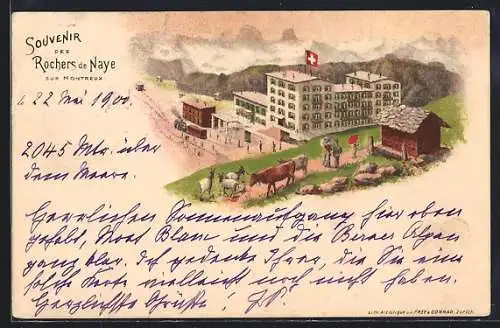 SOUVENIR
DES
ROCHERS de NAYE
SUR MONTREUX
22 Mai 1900.
2045 Mtr. über
dem Meere.
Herrlichen Sonnenaufgang hier oben
gehabt, Mont Blanc und die Berner Alpen
ganz klar. Ich gedenke Ihrer, da Sie eine
solche Karte vielleicht noch nicht haben.
Herzlichste Grüsse!
LITH. ARTISTIQUE v. J. FREY & CONRAD, Zürich.